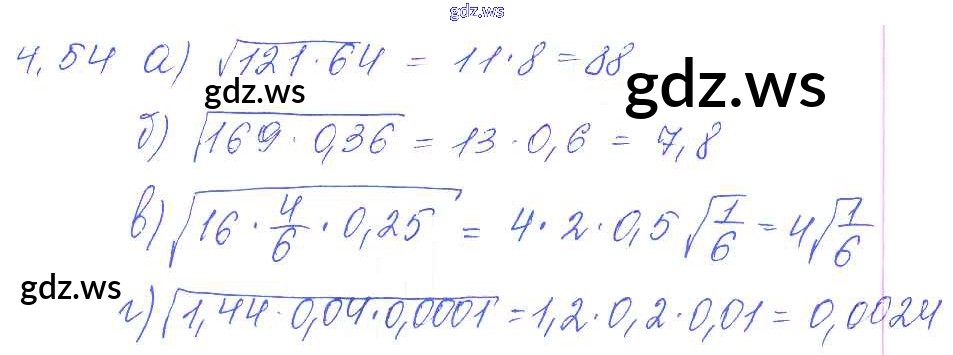 gdz.ws
4,54 а) √121·64 = 11·8 = 88
gdz.ws gdz.ws
б) √169·0,36 = 13·0,6 = 7,8
в) √16·4/6·0,25 = 4·2·0,5√1/6 = 4√1/6
gdz.ws
г) √1,44·0,04·0,0001 = 1,2·0,2·0,01 = 0,0024